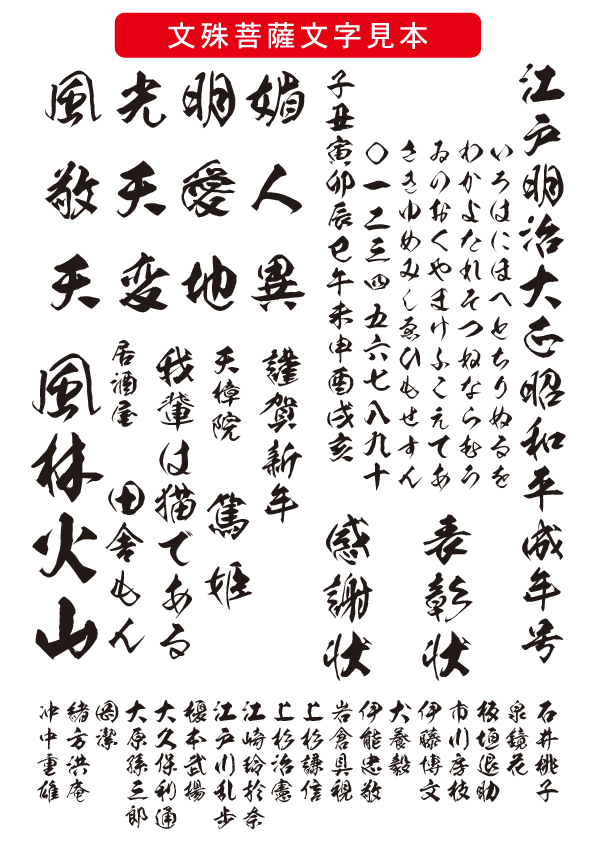 文殊菩薩文字見本
江戸明治大正昭和平成年号
いろはにほへとちりぬるを
わかよたれそつねならむう
ゐのおくやまけふこえてあ
さきゆめみしゑひもせすん
〇一二三四五六七八九十
子丑寅卯辰巳午未申酉戌亥
表彰状
感謝状
風光明媚
敬天愛人
天変地異
謹賀新年
天樟院 篤姫
我輩は猫である
居酒屋 田舎もん
風林火山
石井桃子
泉鏡花
板垣退助
市川房枝
伊藤博文
犬養毅
伊能忠敬
岩倉具視
上杉謙信
上杉治憲
江崎玲於奈
江戸川乱歩
榎本武揚
大久保利通
大原孫三郎
岡潔
緒方洪庵
沖中重雄